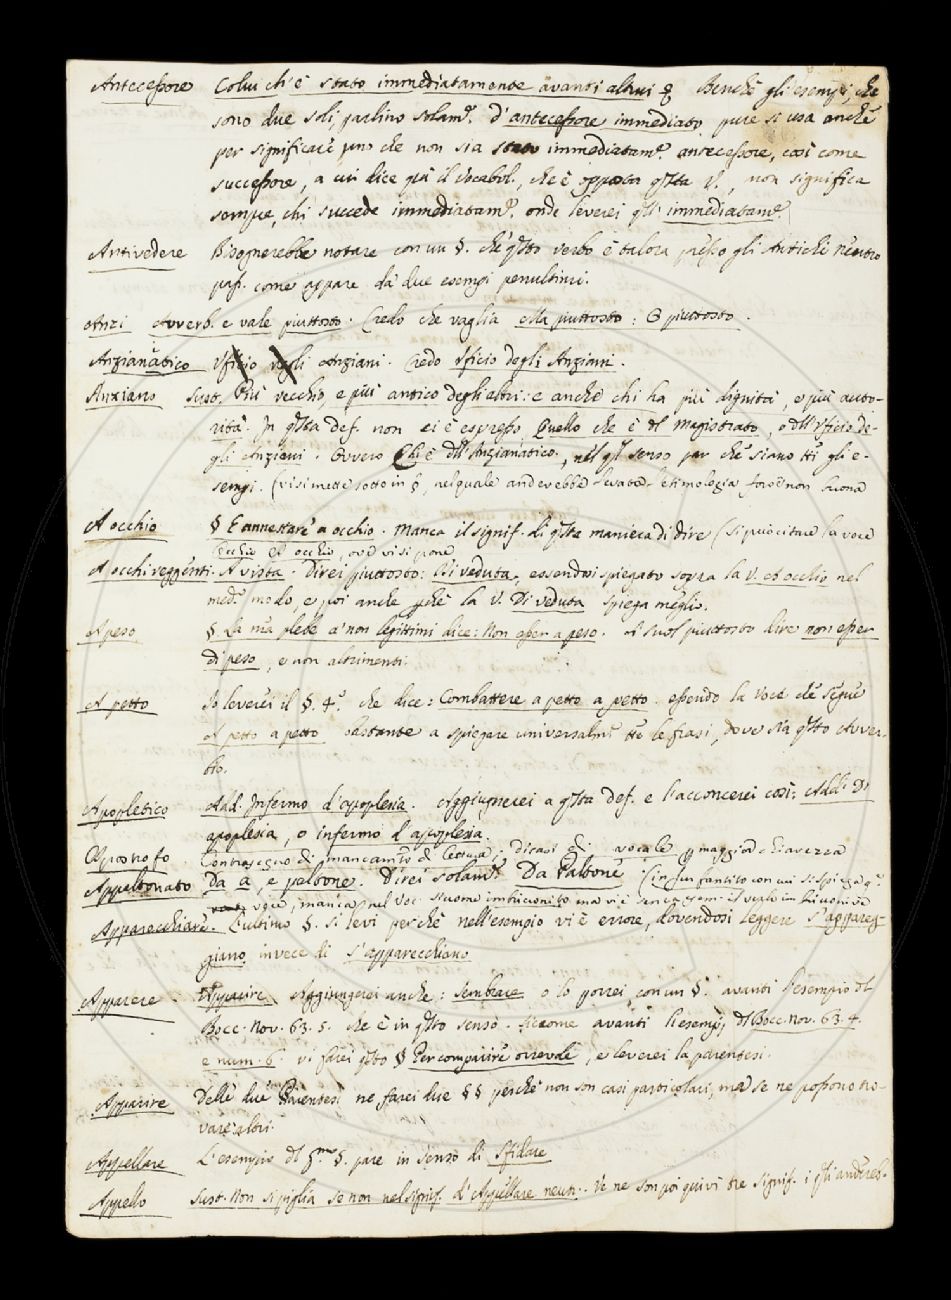 Antecessore Colui ch'è stato immediatamente avanti altrui &. Benchè gli esempi, che
sono due soli, parlino solam.e d'antecessore immediato pure si usa anche
per significare uno che non sia stato immediatam.e antecessore, così come
successore, a cui dice più il Vocabol., che è opposta q.sta V., non significa
sempre, chi succede immediatam.e onde leverei q.ll' immediatam.e
Antivedere Bisognerebbe notare con un §. che q.sto verbo è talora presso gli Antichi Neutro
pass. come appare da' due esempi penultimi.
Anzi Avverb. e vale piuttosto. Credo che vaglia Ma piuttosto: O piuttosto.
Anzianatico Uficio degli Anziani. Credo Uficio degli Anziani.
Anziano Sust. Più vecchio, e più antico degli altri: e anche chi ha più dignità, e più auto-
rità. In q.sta def. non ci è espresso Quello che è del Magistrato, o dell'Uficio de-
gli Anziani. Ovvero Chi è dell'Anzianatico, nel q.l senso par che siano tti gli e-
sempi. (vi si mette sotto in §, nel quale anderebbe levata l'etimologia non buona
A occhio § E annestare a occhio. Manca il signif. di q.sta maniera di dire (si può citare la voce
Occhio ove vi si pone
A occhi veggenti. A vista. Direi piuttosto: Di veduta, essendosi spiegato sopra la V. A occhio nel
med.o modo, e poi anche p.chè la V. Di veduta spiega meglio.
A peso §. La n.ra plebe a' non legittimi dice: Non esser a peso. Si suol piuttosto dire non esser
di peso, e non altrimenti.
A petto Io leverei il §. 4.o che dice: Combattere a petto a petto essendo la voce che segue
A petto a petto bastante a spiegare universalm.e tte le frasi, dove sia q.sto Avver-
bio.
Apopletico Add. Infermo d'apoplesia. Aggiugnerei a q.sta def. e l'acconcerei così: Add. Di
apoplesia, o infermo d'apoplesia.
Apostrofo Contrassegno di mancamento di lettera; dicasi di vocale p maggior chiarezza
Appaltonato Da a, e paltone. Direi solam.e Da Paltone (in fur fantito con cui si spiega q.a
voce, manca nel Voc.
Apparecchiare. L'ultimo §. si levi perchè nell'esempio vi è errore, dovendosi leggere S'appareg-
giano invece di S'apparecchiano
Apparere Apparire. Aggiungerei anche: Sembrare o lo porrei con un §. avanti l'esempio del
Bocc. Nov. 63. 5. che è in q.sto senso. Siccome avanti l'esempj del Bocc. Nov. 63. 4.
e num. 6. vi farei q.sto § Per comparire orrevole, e leverei la parentesi.
Apparire Delle due Parentesi ne farei due §§ perchè non son casi particolari, ma se ne possono tro-
vare altri.
Appellare L'esempio del p.mo §. pare in senso di Sfidare
Appello Sust. Non si piglia se non nel signif. d'Appellare neutr. Ve ne son poi quivi tre signif. i q.li andreb-